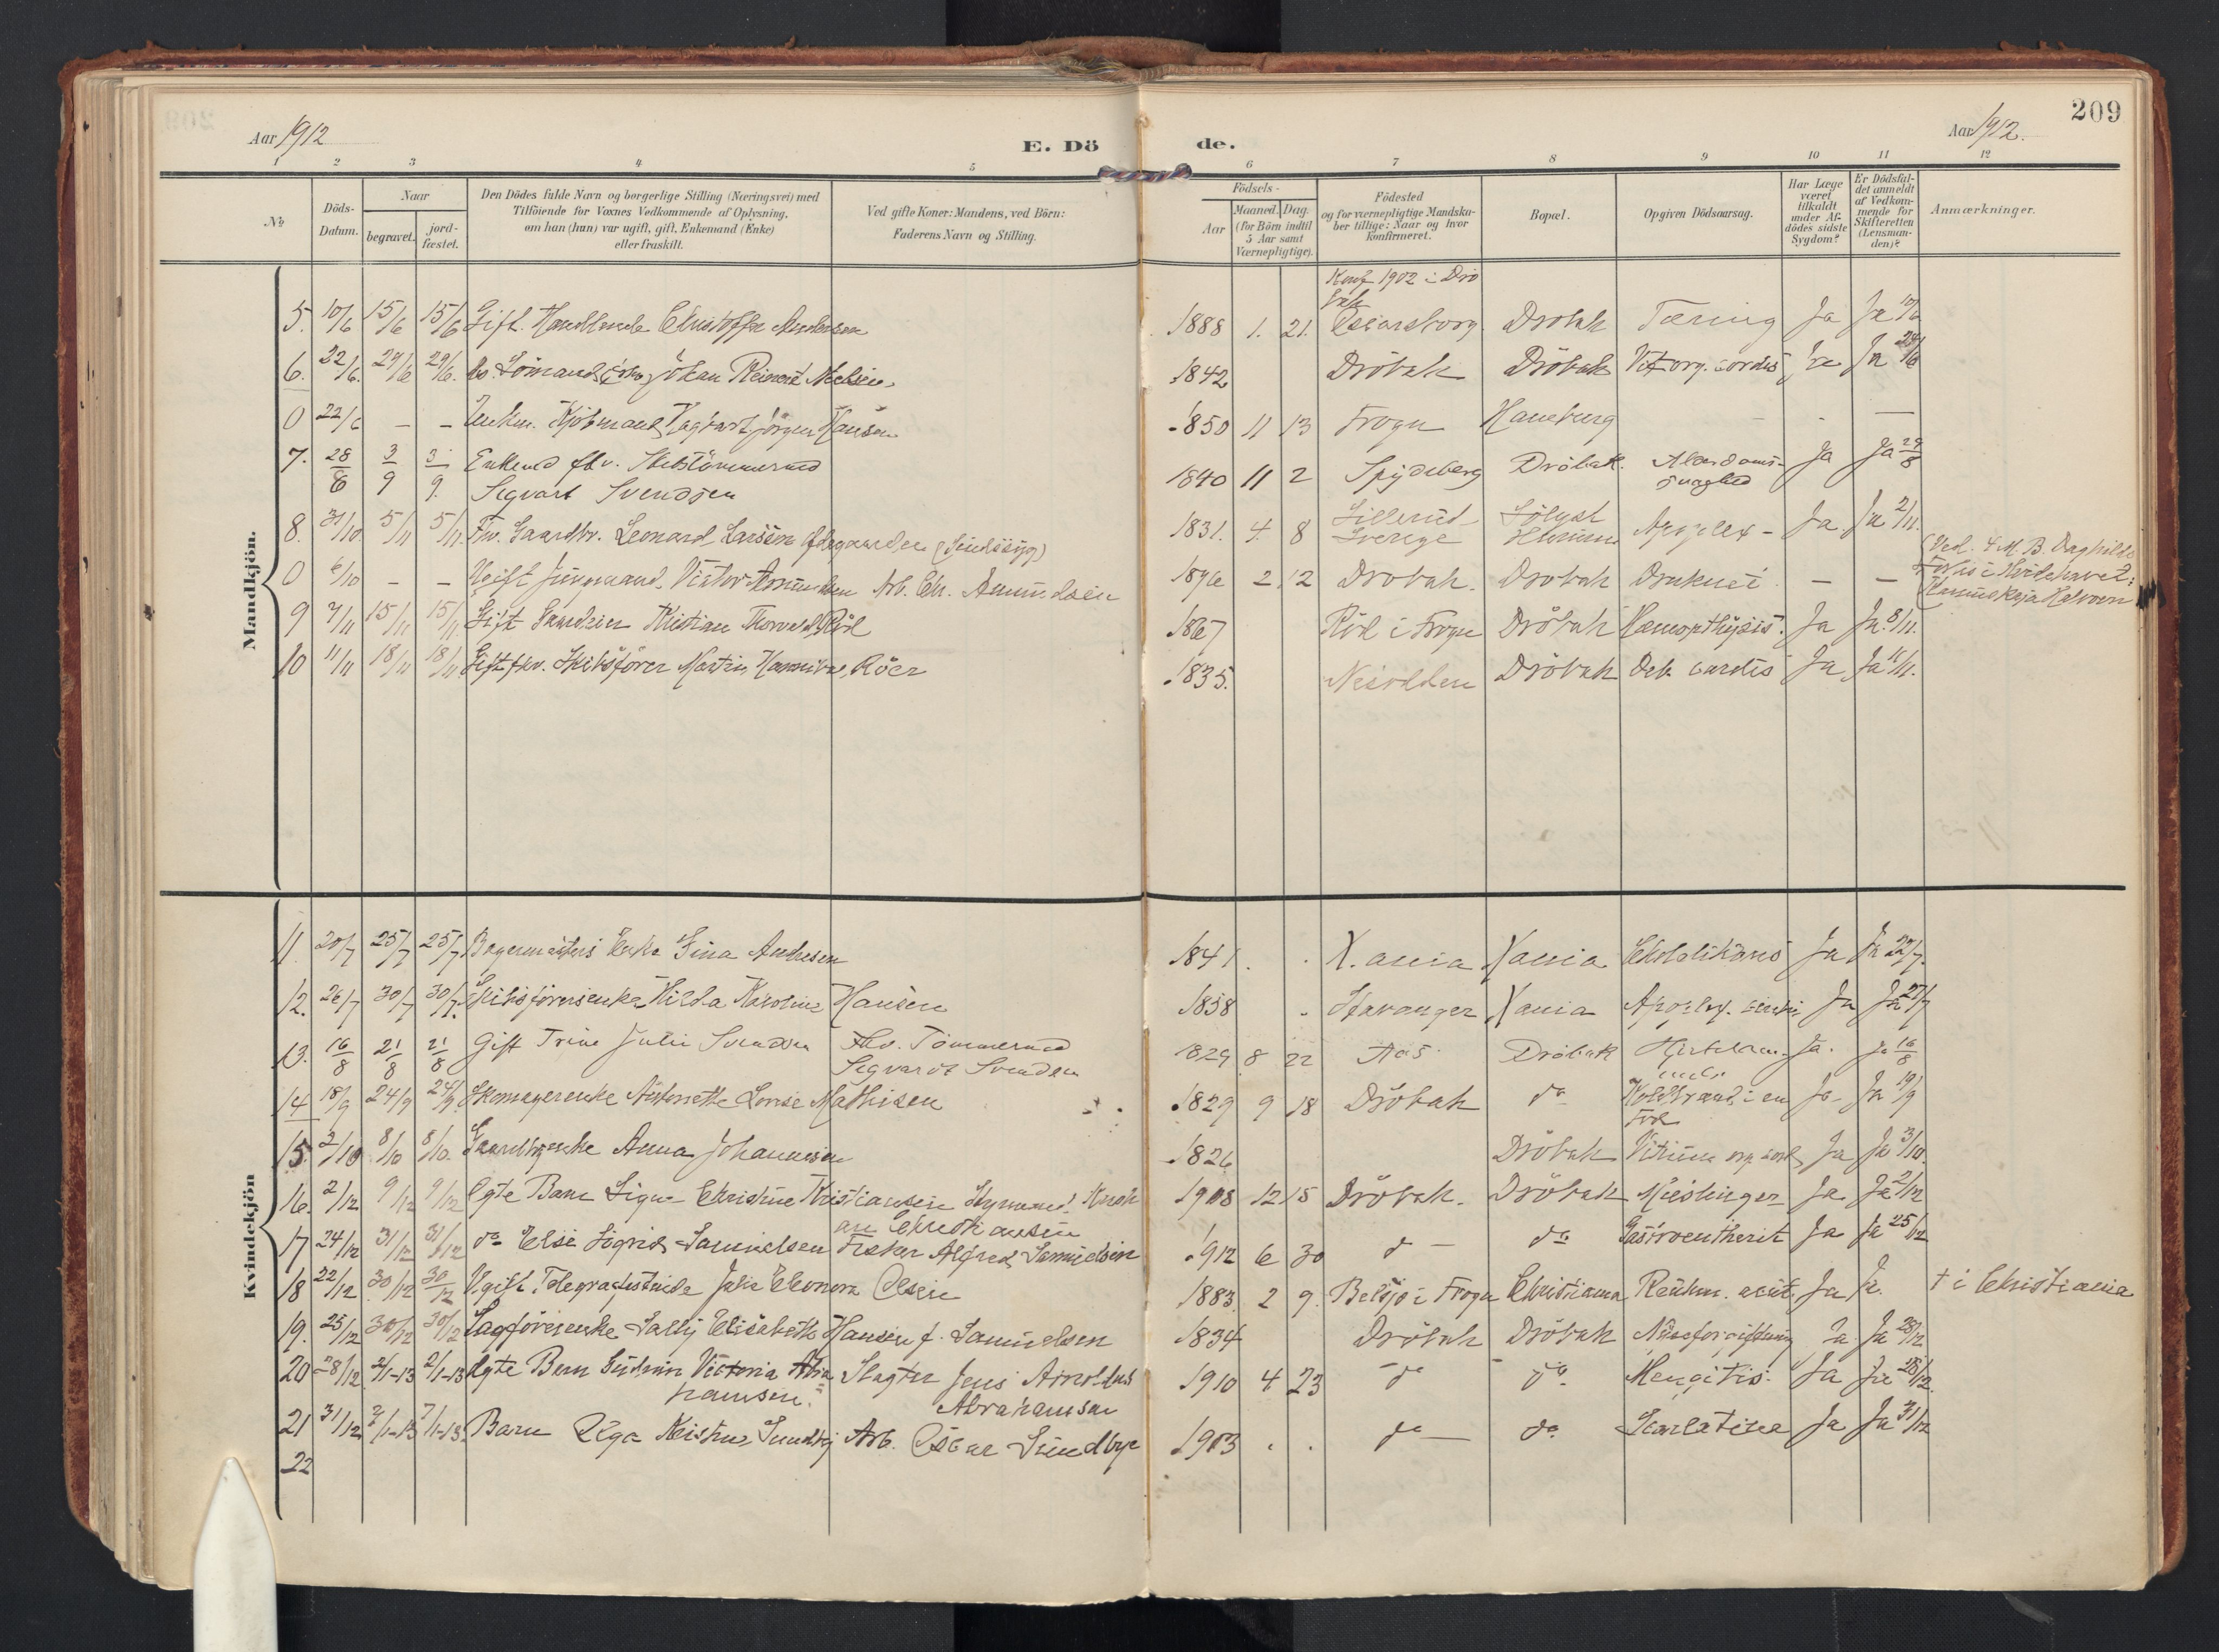 209
Aar 1912
E. Dö de.
Aar 1912.
1 2 3 4 5 6 7 8 9 10 11 12
No
Döds-Datum.
Naar
begravet.
jord-fæstet.
Den Dödes fulde Navn og borgerlige Stilling (Næringsvei) med
Tilföiende for Voxnes Vedkommende af Oplysning,
om han (hun) var ugift, gift, Enkemand (Enke)
eller fraskilt.
Ved gifte Koner: Mandens, ved Börn:
Faderens Navn og Stilling.
Födsels-
Aar
Maaned. Dag.
(for Börn indtil
5 Aar samt
Værnepligtige).
Födested
og for værnepligtige Mandska-
ber tillige: Naar og hvor
konfirmeret.
Bopæl.
Opgiven Dödsaarsag.
Har Læge
været
tilkaldt
under Af-
dödes sidste
Sygdom?
Er Dödsfal-
det anmeldt
af Vedkom-
mende for
Skifteretten
(Lensman-
den)?
Anmærkninger.
Mandkjön.
Konf 1902 i Drö
bak
5. 10/6 15/6 15/6 Gift. Handlende Christoffer Andersen 1888 1. 21. Drobak Tæring Ja Ja
6. 22/6. 29/6 29/6. Johan Reinert Nielsen. 1842 Dröbak Dröbak Vit. org. cordis Ja Ja 24/6
0 22/6 — — Kjöbmand Hagbart Jörgen Hansen 1850 11 13 Frogn Hamburg — - —
7. 28/8 3/9 3/9. Enkemd fhv. Skibstömmermd 1840 11 2 Spydeberg Dröbak. Alderdoms- Ja Ja 29/8
Segvart Svendsen svaghed
8. 31/10. 5/11 5/11. Fhv. Gaardbr. Leonard Larsen (Sindssyg) 1831. 4. 8 Sillerud Sverige Sölyst Apoplex - Ja. Ja 2/11.
0 6/10 — — Ugift Jungmand Victor Amundsen Arb. Chr. Amundsen 1896 2 12 Drobak. Drobak Druknet — —
Forlis i Hvidehavet
9 7/11 15/11 15/11. Gift Kristian Thorvald Röd 1867 Röd i Frogn Dröbak Hæmopthysis. Ja Ja. 8/11.
10 11/11 18/11 18/11 Gift fhv. Skibsförer Martin Hannibal Röer 1835. Nesodden Dröbak Deb. cardis Ja Ja 11/11.
Kvindekjön
11. 20/7 25/7 25/7 Bagermesters Enke Gina Andresen 1841. X.ania Xania Ja Ja 22/7.
12. 26/7 30/7 30/7. Skibsförersenke Hilda Karoline Hansen 1838 Stavanger Xania Ja Ja 27/7
13. 16/8 21/8 21/8 Gift Trine Julie Svendsen Fhv. Tömmermd 1829 8 22 Aas Dröbak Ja. Ja 16/8
Segvardt Svendsen
14 18/9 24/9 24/9. Skomagerenke Antonette Lovise Mathisen 1829 9 18 Dröbak do Koldbrand i en Ja Ja 19/9
Fod
15. 2/10 8/10 8/10. Gaardbrenke Anna Johannesen 1826 Dröbak Vitium org. cord. Ja Ja 3/10.
16. 2/12 9/12 9/12 Egte Barn Signe Christine Kristiansen 1908 12 15 Dröbak. Dröbak Mæslinger Ja. Ja 2/12
Christiansen
17 24/12 31/12 31/12 do Else Sigrid Samuelsen Fisker Alfred Samuelsen 1912 6 30 do — do Gastroentherit Ja Ja 25/12
18 22/12 30/12 30/12 Ugift Telegrafistinde Julie Eleonora Olsen 1883. 2 9. Belsjö i Frogn Christiania Reuhm. acut Ja Ja. † i Christiania
19. 25/12 30/12 30/12 Sagförerenke Sally Elisabeth Hansen f. Samuelsen 1834 Dröbak Dröbak Ja Ja 28/12
20 28/12 2/1-13 2/1-13 Egte Barn Gudrun Victoria Abra Slagter Jens Arnoldus 1910 4 23 do do. Mengitis. Ja Ja 28/12.
hamsen. Abrahamsen
21 31/12 7/1-13 7/1-13. Barn Olga Kristine Sundby Arb. Oscar Sundbye 1903 . . do — do. Scarlatina Ja Ja 31/12
22